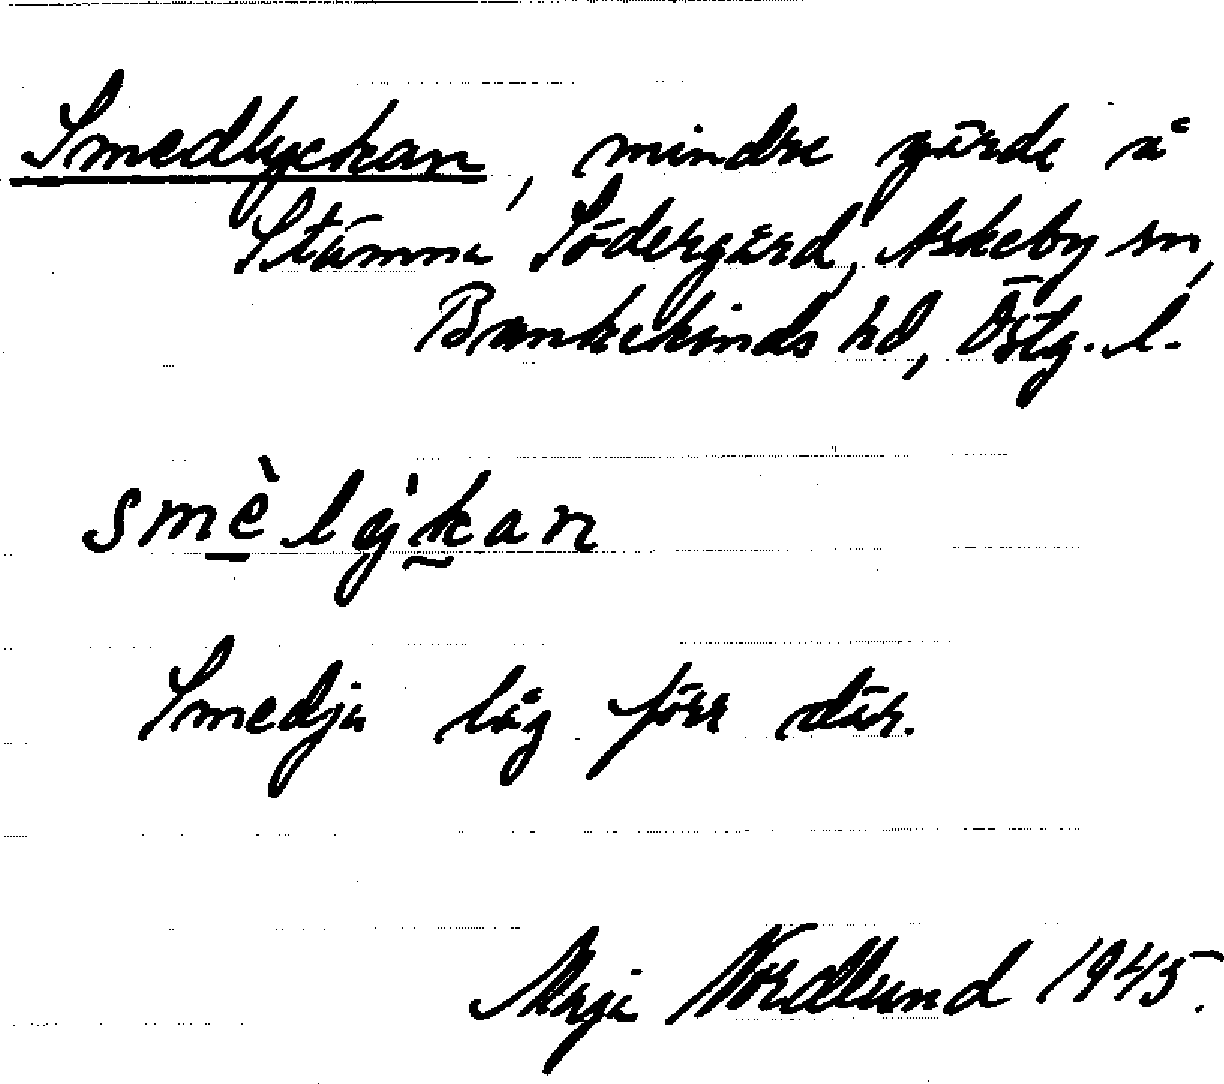 Smedlyckan, mindre gärde å
Stämma Södergård, Askeby sn,
Bankekinds hd, Östg. l.
smèlýkan
Smedja låg förr där.
Maja Nordlund 1945.